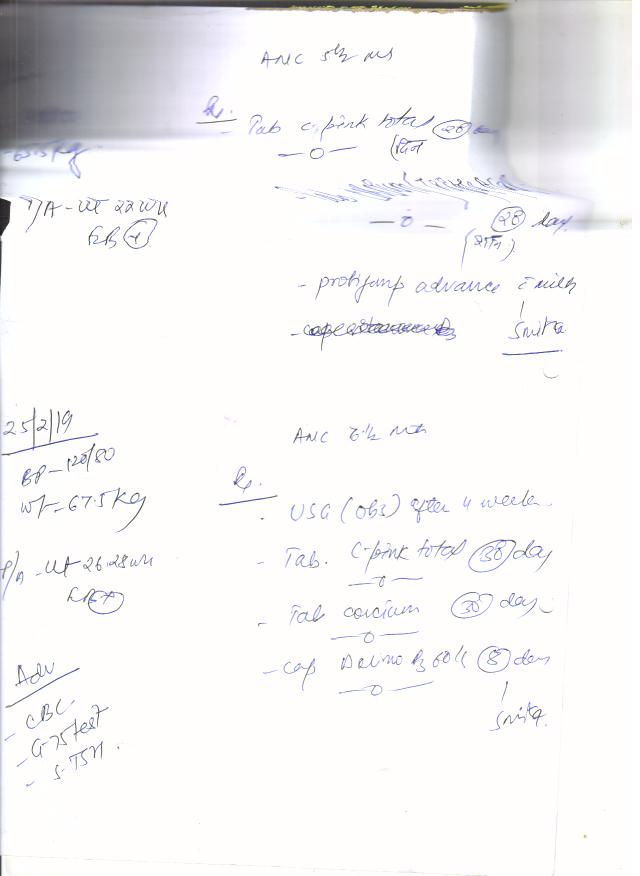 ANC 5½ ms
65.5 kg
Rx.
- Tab C-pink total (28) day
—o— (दिन
P/A - Ut 22 wk
FHR (+)
—o— (28) day
(रात)
- protijump advance c̄ milk
- cap
Smita
25/2/19
ANC 6½ ms
BP - 120/80
Wt - 67.5 kg
Rx.
- USG (Obs) after 4 weeks.
P/A - Ut 26-28 wk
- Tab. C-pink total (30) day
—o—
- Tab corcium (30) day
—o—
- cap D3 60K (8) day
—o—
Smita
Adv
- CBC
- G-75 test
- S. TSH.